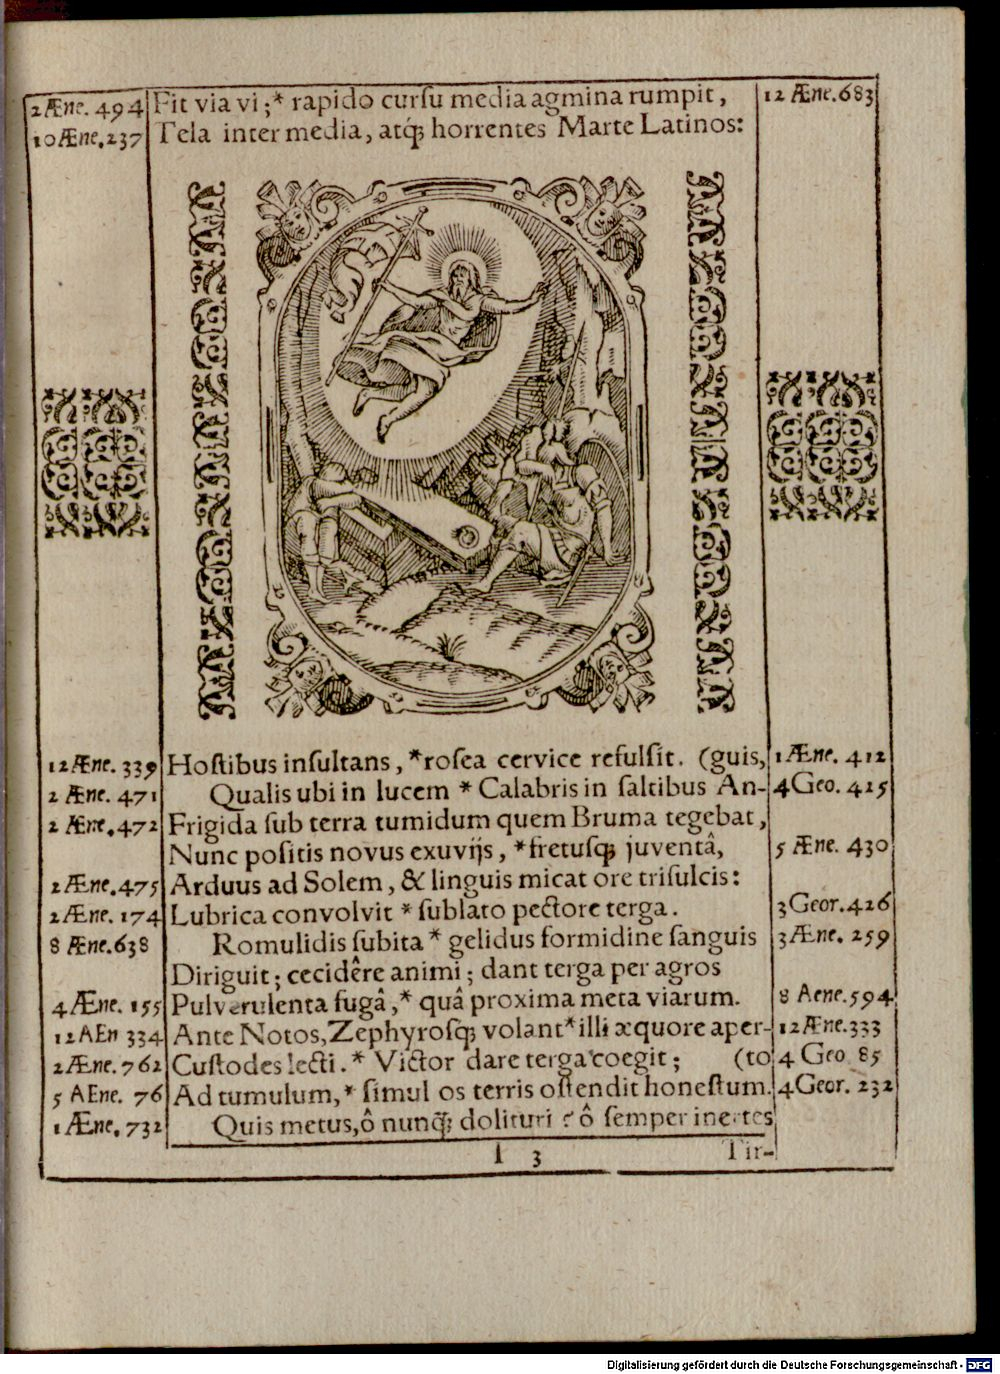 2 Æne. 494 Fit via vi;* rapido cursu media agmina rumpit, 12 Æne. 683
10 Æne. 237 Tela inter media, atq́; horrentes Marte Latinos:
12 Æne. 339 Hostibus insultans, *rosea cervice refulsit. (guis, 1 Æne. 412
2 Æne. 471 Qualis ubi in lucem * Calabris in saltibus An- 4 Geo. 425
2 Æne. 472 Frigida sub terra tumidum quem Bruma tegebat,
Nunc positis novus exuvijs, *fretusq; juventâ, 5 Æne. 430
2 Æne. 475 Arduus ad Solem, & linguis micat ore trisulcis:
2 Æne. 174 Lubrica convolvit * sublato pectore terga. 3 Geor. 426
8 Æne. 638 Romulidis subita * gelidus formidine sanguis 3 Æne. 259
Diriguit; cecidêre animi; dant terga per agros
4 Æne. 155 Pulverulenta fugâ,* quâ proxima meta viarum. 8 Aene. 594
12 AEn 334 Ante Notos, Zephyrosq; volant* illi æquore aper- 12 Æne. 333
2 Æne. 762 Custodes lecti. * Victor dare terga coegit; (to 4 Geo 85
5 AEne. 76 Ad tumulum,* simul os terris ostendit honestum. 4 Geor. 232
1 Æne. 732 Quis metus, ô nunq̃; dolituri? ô semper inertes
I 3 Tir-
Digitalisierung gefördert durch die Deutsche Forschungsgemeinschaft - DFG